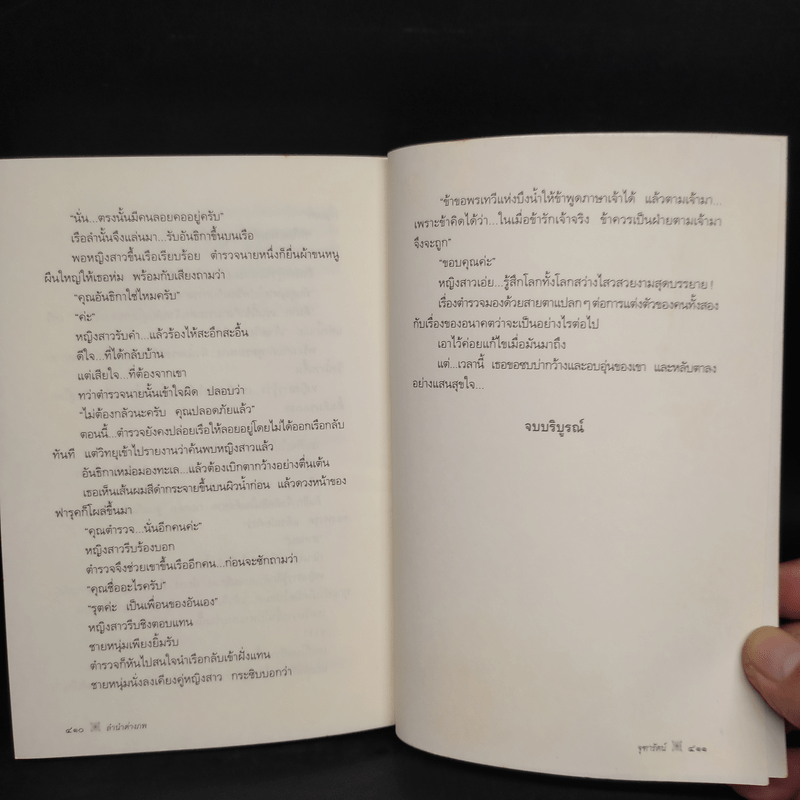 “นั่น...ตรงนั้นมีคนลอยคออยู่ครับ”
เรือลำนั้นจึงแล่นมา...รับอันธิกาขึ้นบนเรือ
พอหญิงสาวขึ้นเรือเรียบร้อย ตำรวจนายหนึ่งก็ยื่นผ้าขนหนู
ผืนใหญ่ให้เธอห่ม พร้อมกับเสียงถามว่า
“คุณอันธิกาใช่ไหมครับ”
“ค่ะ”
หญิงสาวรับคำ...แล้วร้องไห้สะอึกสะอื้น
ดีใจ...ที่ได้กลับบ้าน
แต่เสียใจ...ที่ต้องจากเขา
ทว่าตำรวจนายนั้นเข้าใจผิด ปลอบว่า
“ไม่ต้องกลัวนะครับ คุณปลอดภัยแล้ว”
ตอนนี้...ตำรวจยังคงปล่อยเรือให้ลอยอยู่โดยไม่ได้ออกเรือกลับ
ทันที แต่วิทยุเข้าไปรายงานว่าค้นพบหญิงสาวแล้ว
อันธิกาเหม่อมองทะเล...แล้วต้องเบิกตากว้างอย่างตื่นเต้น
เธอเห็นเส้นผมสีดำกระจายขึ้นบนผิวน้ำก่อน แล้วดวงหน้าของ
ฟารุคก็โผล่ขึ้นมา
“คุณตำรวจ...นั่นอีกคนค่ะ”
หญิงสาวรีบร้องบอก
ตำรวจจึงช่วยเขาขึ้นเรืออีกคน...ก่อนจะซักถามว่า
“คุณชื่ออะไรครับ”
“รุตค่ะ เป็นเพื่อนของอันเอง”
หญิงสาวรีบชิงตอบแทน
ชายหนุ่มเพียงยิ้มรับ
ตำรวจก็หันไปสนใจนำเรือกลับเข้าฝั่งแทน
ชายหนุ่มนั่งลงเคียงคู่หญิงสาว กระซิบบอกว่า
๔๑๐ ลำนำต่างภพ
“ข้าขอพรเทวีแห่งบึงน้ำให้ข้าพูดภาษาเจ้าได้ แล้วตามเจ้ามา...
เพราะข้าคิดได้ว่า...ในเมื่อข้ารักเจ้าจริง ข้าควรเป็นฝ่ายตามเจ้ามา
จึงจะถูก”
“ขอบคุณค่ะ”
หญิงสาวเอ่ย...รู้สึกโลกทั้งโลกสว่างไสวสวยงามสุดบรรยาย !
เรื่องตำรวจมองด้วยสายตาแปลกๆ ต่อการแต่งตัวของคนทั้งสอง
กับเรื่องของอนาคตว่าจะเป็นอย่างไรต่อไป
เอาไว้ค่อยแก้ไขเมื่อมันมาถึง
แต่...เวลานี้ เธอขอซบบ่ากว้างและอบอุ่นของเขา และหลับตาลง
อย่างแสนสุขใจ...
จบบริบูรณ์
รุฑารัตน์ ๔๑๑